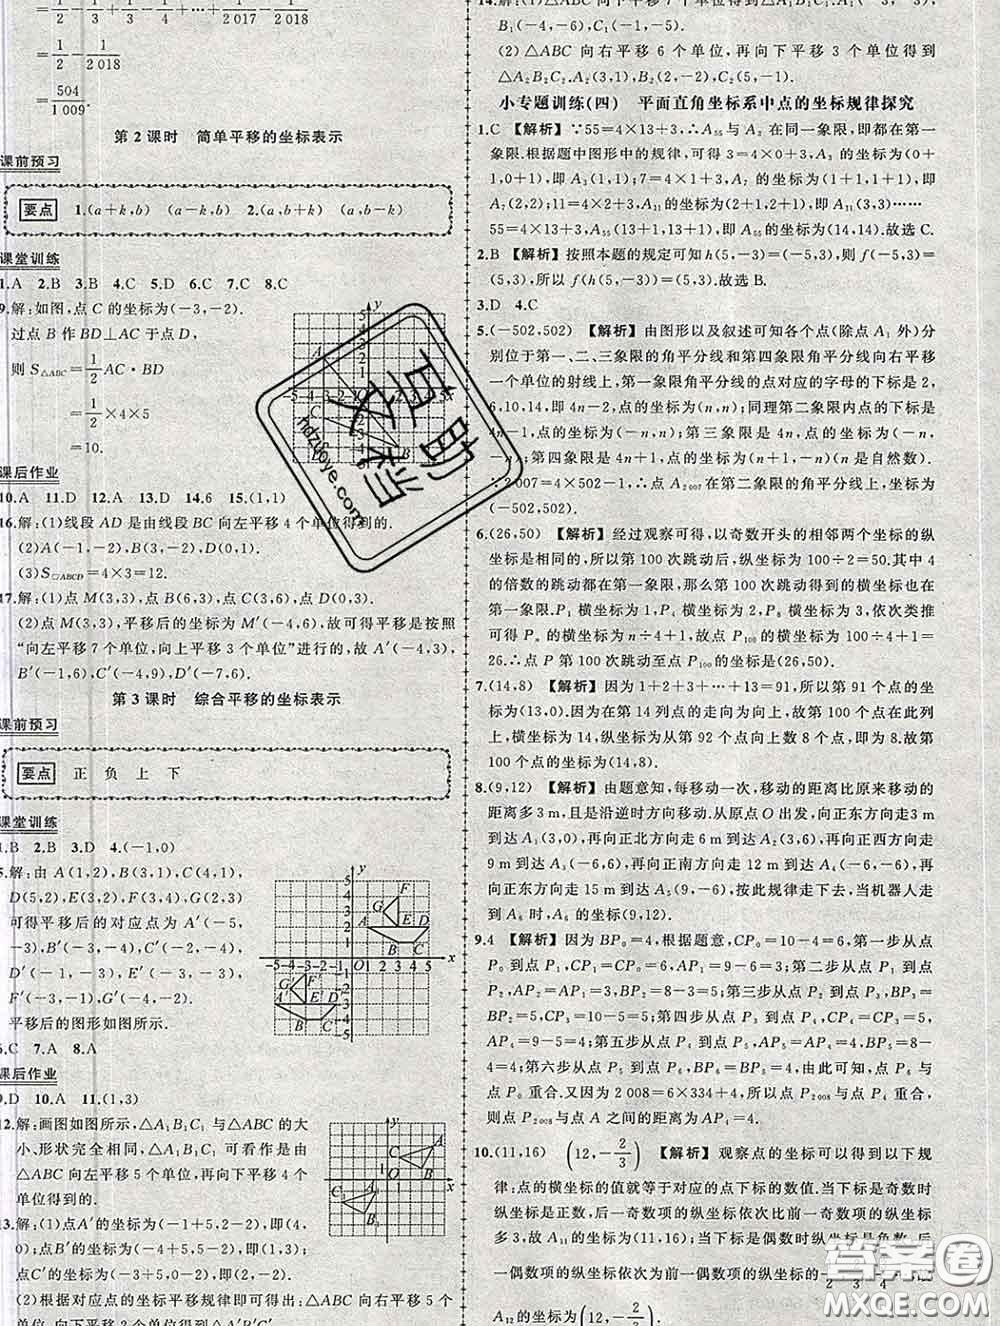 1 2 3 4 2017 2018
=1/2-1/2 018
=504/1 009.
第2课时 简单平移的坐标表示
课前预习
要点 1.(a+k,b) (a-k,b) 2.(a,b+k) (a,b-k)
课堂训练
1.A 2.B 3.B 4.C 5.D 6.C 7.C 8.C
9.解:如图,点C的坐标为(-3,-2).
过点B作BD⊥AC于点D,
则S△ABC=1/2AC·BD
=1/2×4×5
=10.
课后作业
10.A 11.D 12.A 13.D 14.6 15.(1,1)
16.解:(1)线段AD是由线段BC向左平移4个单位得到的.
(2)A(-1,-2),B(3,-2),D(-1,1).
(3)S▱ABCD=4×3=12.
17.解:(1)点M(3,3),点B(6,3),点C(3,6),点D(0,3).
(2)点M(3,3),平移后的坐标为M′(-4,6),故可得平移是按照
“向左平移7个单位,向上平移3个单位”进行的,故A′(-4,3),
B′(-1,6),C′(-4,9),D′(-7,6).
第3课时 综合平移的坐标表示
课前预习
要点 正 负 上 下
课堂训练
1.B 2.B 3.D 4.(-1,0)
5.解:由A(1,2),B(3,1),C(4,1),
D(5,2),E(3,2),F(3,4),G(2,3)
可得平移后的对应点为A′(-5,
-3),B′(-3,-4),C′(-2,-4),
D′(-1,-3),E′(-3,-3),
F′(-3,-1),G′(-4,-2).
平移后的图形如图所示.
6.C 7.A 8.A
课后作业
9.D 10.A 11.(1,3)
12.解:画图如图所示,△A1B1C1与△ABC的大
小、形状完全相同,△A1B1C1可看作是由
△ABC向左平移5个单位,再向下平移4个
单位得到的.
13.解:(1)点A′的坐标为(-1+5,2-2),即(4,
0);点B′的坐标为(-4+5,5-2),即(1,3);
点C′的坐标为(-3+5,0-2),即(2,-2).
(2)根据对应点的坐标平移规律即可得出:△ABC向右平移5个
B1(-4,-6),C1(1,-5).
(2)△ABC向右平移6个单位,再向下平移3个单位得到
△A2B2C2,A2(6,-1),B2(2,-2),C2(7,-1).
小专题训练(四) 平面直角坐标系中点的坐标规律探究
1.C 【解析】∵55=4×13+3,∴A55与A3在同一象限,即都在第一
象限.根据题中图形中的规律,可得3=4×0+3,A3的坐标为(0+
1,0+1),即A3(1,1);7=4×1+3,A7的坐标为(1+1,1+1),即
A7(2,2);11=4×2+3,A11的坐标为(2+1,2+1),即A11(3,3)……
55=4×13+3,A55(13+1,13+1),A55的坐标为(14,14).故选C.
2.B 【解析】按照本题的规定可知h(5,-3)=(-5,3),则f(-5,3)=
(5,3),所以f(h(5,-3))=(5,3).故选B.
3.D 4.C
5.(-502,502) 【解析】由图形以及叙述可知各个点(除点A1外)分
别位于第一、二、三象限的角平分线和第四象限角平分线向右平移
一个单位的射线上,第一象限角平分线的点对应的字母的下标是2,
6,10,14,即4n-2,点的坐标为(n,n);同理第二象限内点的下标是
4n-1,点的坐标为(-n,n);第三象限是4n,点的坐标为
(-n,-n);第四象限是4n+1,点的坐标为(1+n,-n)(n是自然数).
∵2 007=4×502-1,∴点A2 007在第二象限,且点的坐标为
(-502,502).
6.(26,50) 【解析】经过观察可得,以奇数开头的相邻两个坐标的纵
坐标是相同的,所以第100次跳动后,纵坐标为100÷2=50.其中4
的倍数的跳动都在第一象限,那么第100次跳动得到的横坐标也在
第一象限.P1横坐标为1,P4横坐标为2,P8横坐标为3,依次类推
可得Pn的横坐标为n÷4+1,故点P100的横坐标为100÷4+1=
26.∴点P第100次跳动至点P100的坐标是(26,50).
7.(14,8) 【解析】因为1+2+3+…+13=91,所以第91个点的坐标
为(13,0).因为在第14列点的走向为向上,故第92个点在此列上,
横坐标为14,纵坐标为从第92个点向上数8个点,即为8.故第100
个点的坐标为(14,8).
8.(9,12) 【解析】由题意知,每移动一次,移动的距离比原来移动的
距离多3 m,且是沿逆时方向移动.从原点O出发,向正东方向走3 m
到达A1(3,0),再向正北方向走6 m到达A2(3,6),再向正西方向走
9 m到达A3(-6,6),再向正南方向走12 m到达A4(-6,-6),再向
正东方向走15 m到达A5(9,-6),按此规律走下去,当机器人走
到A6时,A6的坐标(9,12).
9.4 【解析】因为BP0=4,根据题意,CP0=10-4=6,第一步从点
P0到点P1,CP1=CP0=6;第二步从点P1到点P2,AP2=AP1=
9-6=3;第三步从点P2到点P3,BP3=BP2=8-3=5;第四步从点P3到点P4,CP4=CP3=10-5=5;
AP4=9-5=4;第五步从点P4到点P5,AP5=AP4=4,BP5=8-
4=4;第六步从点P5到点P6,BP6=BP5=4,由此可知,点P6与
点P0重合.又因为2 008=6×334+4,所以点P2 008与点P4重合,
则点P2 008与点A之间的距离为AP4=4.
10.(11,16) (12,-2/3) 【解析】观察点的坐标可以得到以下规
律:点的横坐标的值就等于对应的点下标的数值.当下标是奇数时
纵坐标是正数,后一奇数项的纵坐标依次比前一奇数项的纵坐标
多3,故A11的坐标为(11,16);当下标是偶数时纵坐标是负数,后
一偶数项的纵坐标依次为前一偶数项的纵坐标的
A12的坐标为(12,-2/3).
答案圈
MXQE.COM